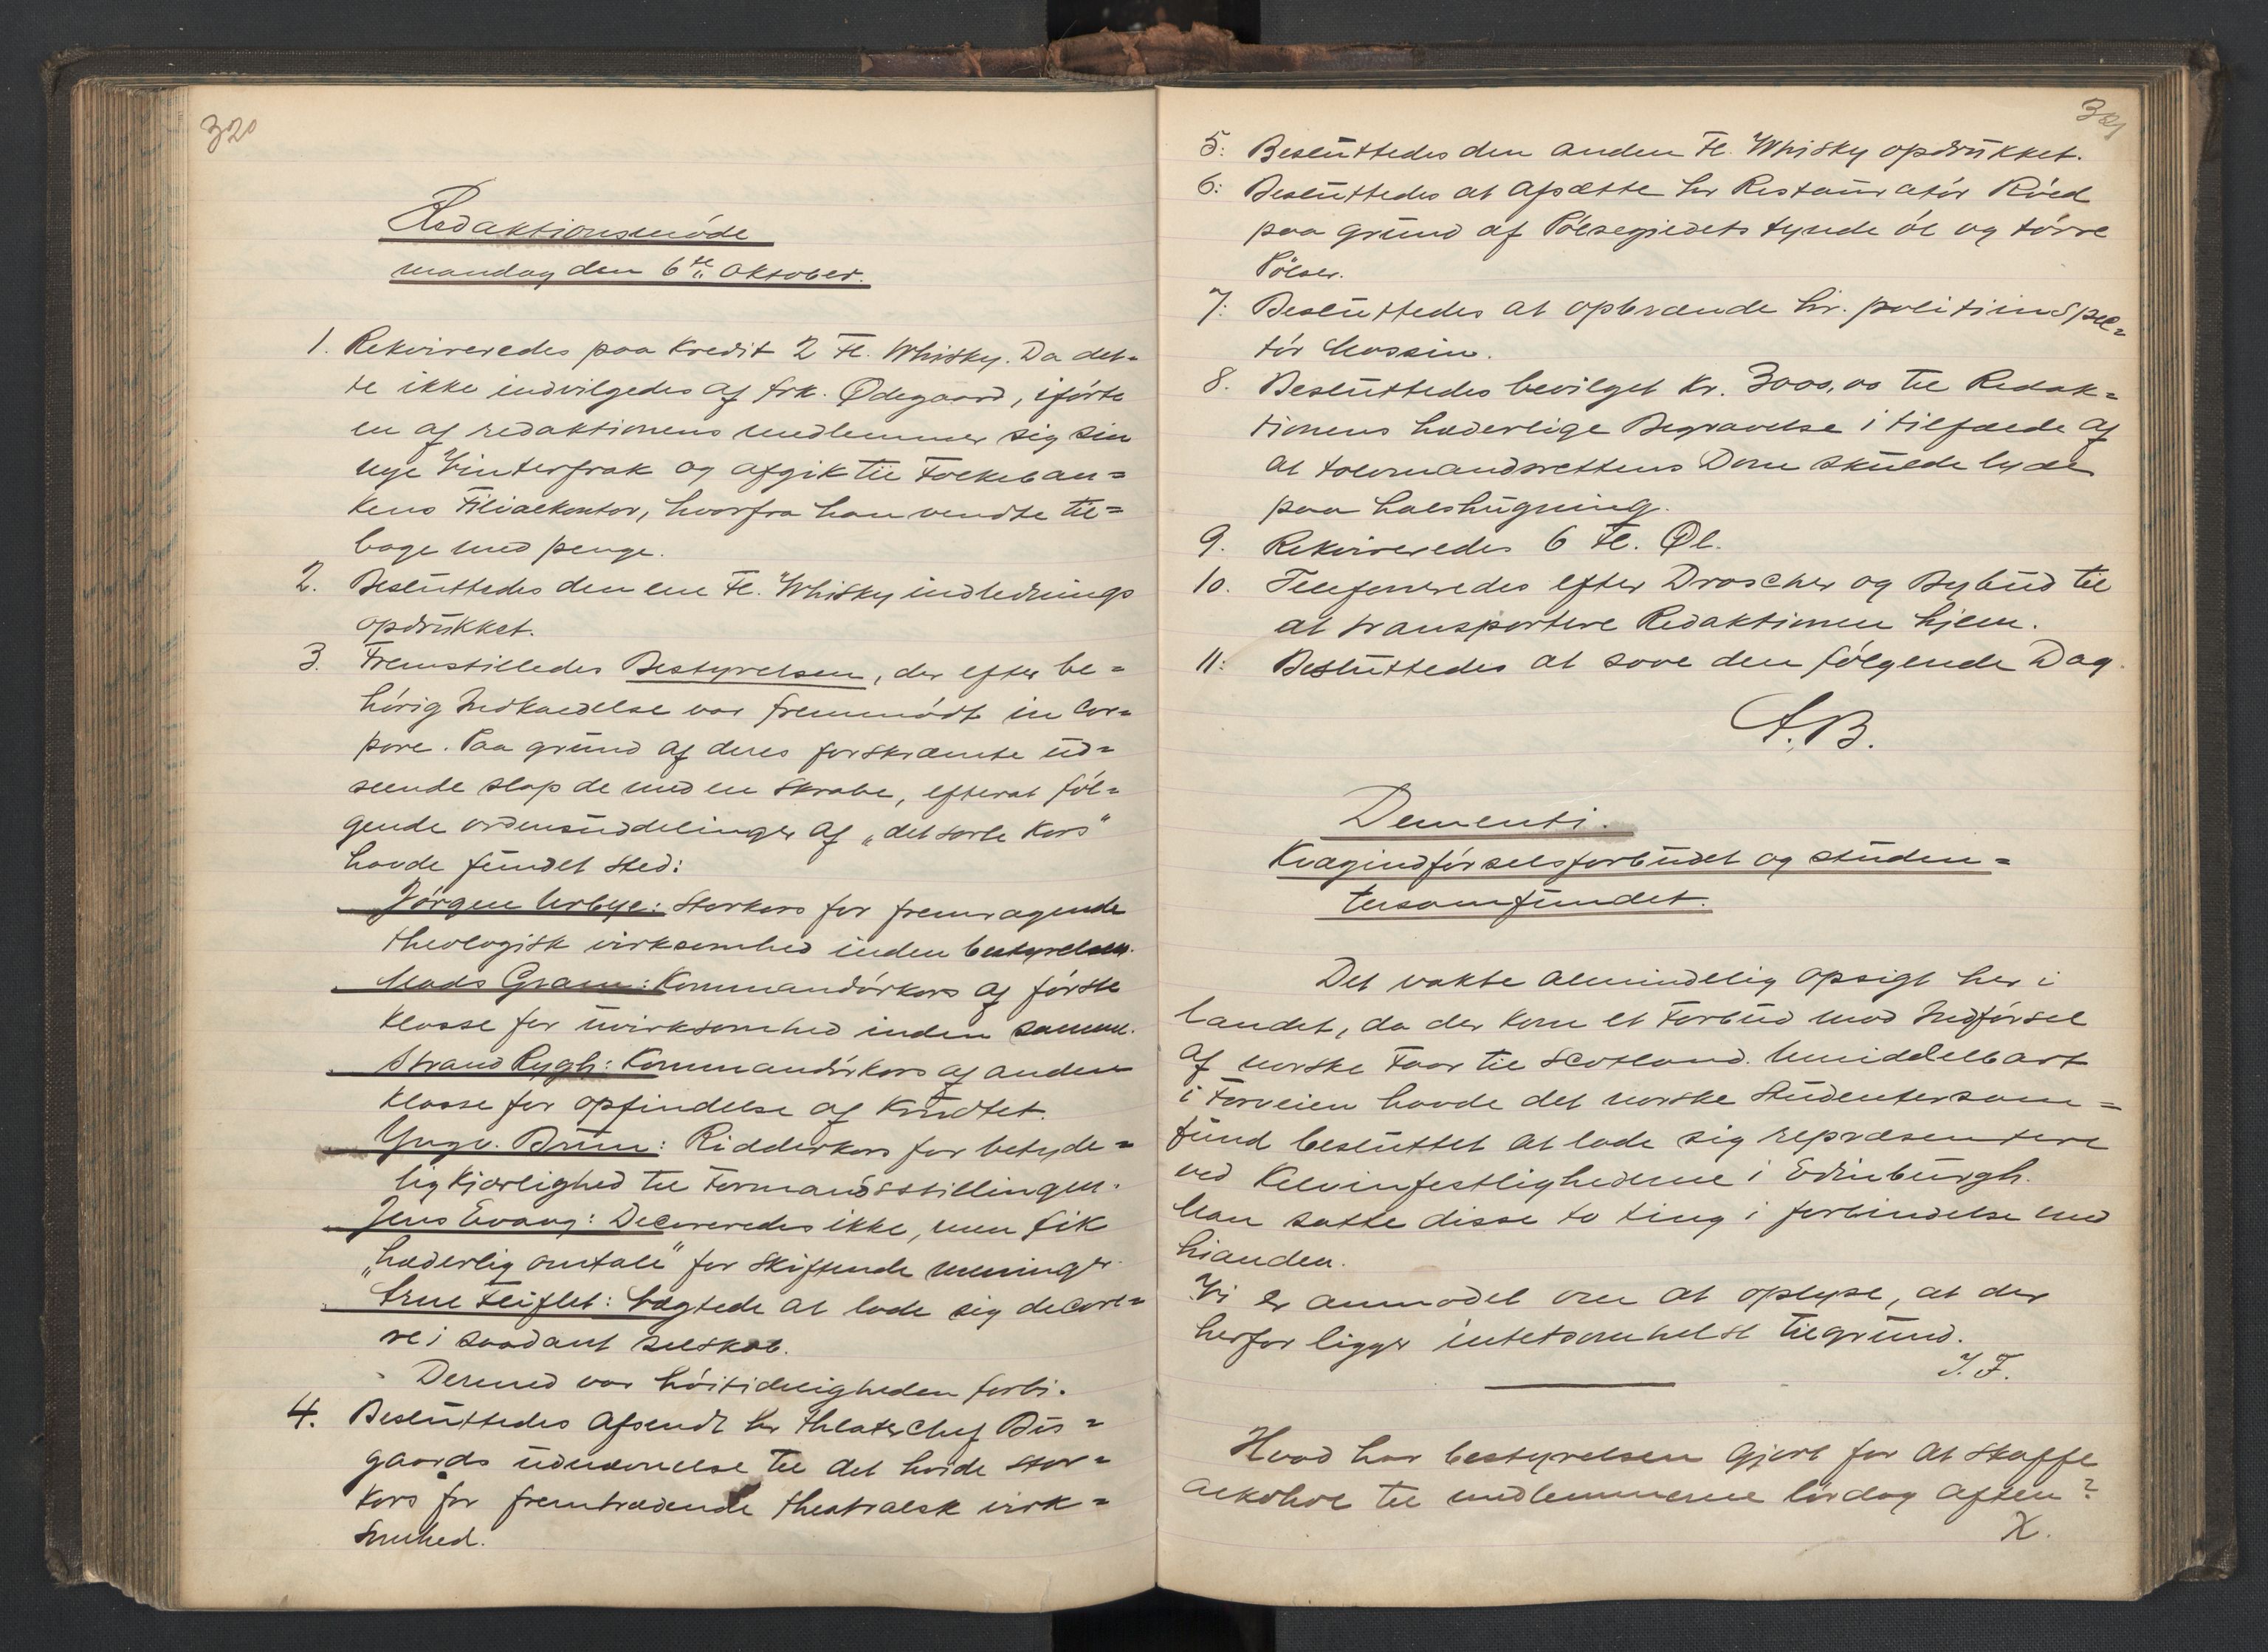 320
Redaktionsmøde
mandag den 6te Oktober.
1. Rekvireredes paa Kredit 2 Fl. Whisky. Da det-
te ikke indvilgedes af frk. Ødegaard, iførte
en af redaktionens medlemmer sig sin
nye Vinterfrak og afgik til Folkeban=
kens Filialkontor, hvorfra han vendte til=
bage med penge.
2. Besluttedes den ene Fl. Whisky indlednings
opdrukket.
3. Fremstilledes Bestyrelsen, der efter be=
hørig Indkaldelse var fremmødt in cor=
pore. Paa grund af deres forskræmte ud=
seende slap de med en skrabe, efterat føl=
gende ordensuddelinger af „det sorte Kors"
havde fundet sted:
Jørgen Urbye: Storkors for fremragende
theologisk virksomhed inden bestyrelsen.
Mads Gram: Kommandørkors af første
klasse for uvirksomhed inden samme.
Strand Rygh: Kommandørkors af anden
klasse for opfindelse af Krudtet.
Yngv. Bruun: Ridderkors for betyde=
lig Kjærlighed til Formandsstillingen.
Jens Evang: Decoreredes ikke, men fik
„hæderlig omtale" for skiftende meninger.
Arne Fliflet: Vægtede at lade sig decore=
re i saadant selskab.
Dermed var høitideligheden forbi.
4. Besluttedes afsendt hr theaterchef Bis=
gaards udnævnelse til det hvide stor=
kors for fremtrædende theatralsk virk=
somhed.
321
5: Besluttedes den anden Fl. Whisky opdrukket.
6: Besluttedes at afsætte hr Restauratør Røed
paa grund af Pølsegiedets tynde øl og tørre
Pølser.
7: Besluttedes at opbrænde hr. politiinspec=
tør Mossin.
8. Besluttedes bevilget Kr. 3000,00 til Redak=
tionens hæderlige Begravelse i tilfælde af
at tolvmandsrettens Dom skulde lyde
paa halshugning.
9. Rekvireredes 6 Fl. Øl.
10. Telefoneredes efter Droscher og Bybud til
at transportere Redaktionen hjem.
11: Besluttedes at sove den følgende Dag.
A.B.
Dementi.
Kvægindførselsforbudet og studen=
tersamfundet.
Det vakte almindelig opsigt her i
landet, da der kom et Forbud mod Indførsel
af norske Faar til Scotland. Umiddelbart
i Forveien havde det norske Studentersam=
fund besluttet at lade sig repræsentere
ved Kelvinfestlighederne i Edinburgh.
Man satte disse to ting i forbindelse med
hinanden.
Vi er anmodet om at oplyse, at der
herfor ligger intetsomhelst tilgrund.
J. F.
Hvad har bestyrelsen gjort for at skaffe
alkohol til medlemmerne lørdag aften?
X.